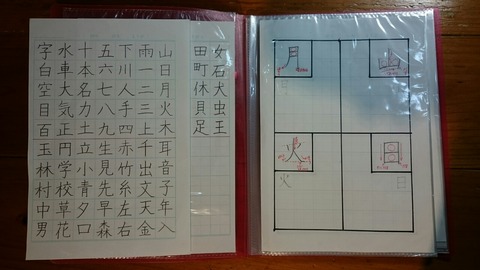 山日月火木耳音子年入
雨一二三上千出文天金
下川人手四赤竹糸左右
五六七八九生見先早森
十本名力土立小青夕口
水車大気正円学校草花
字白空目百玉林村中男
女石犬虫王
田町休貝足
山
日
日
月
火
火